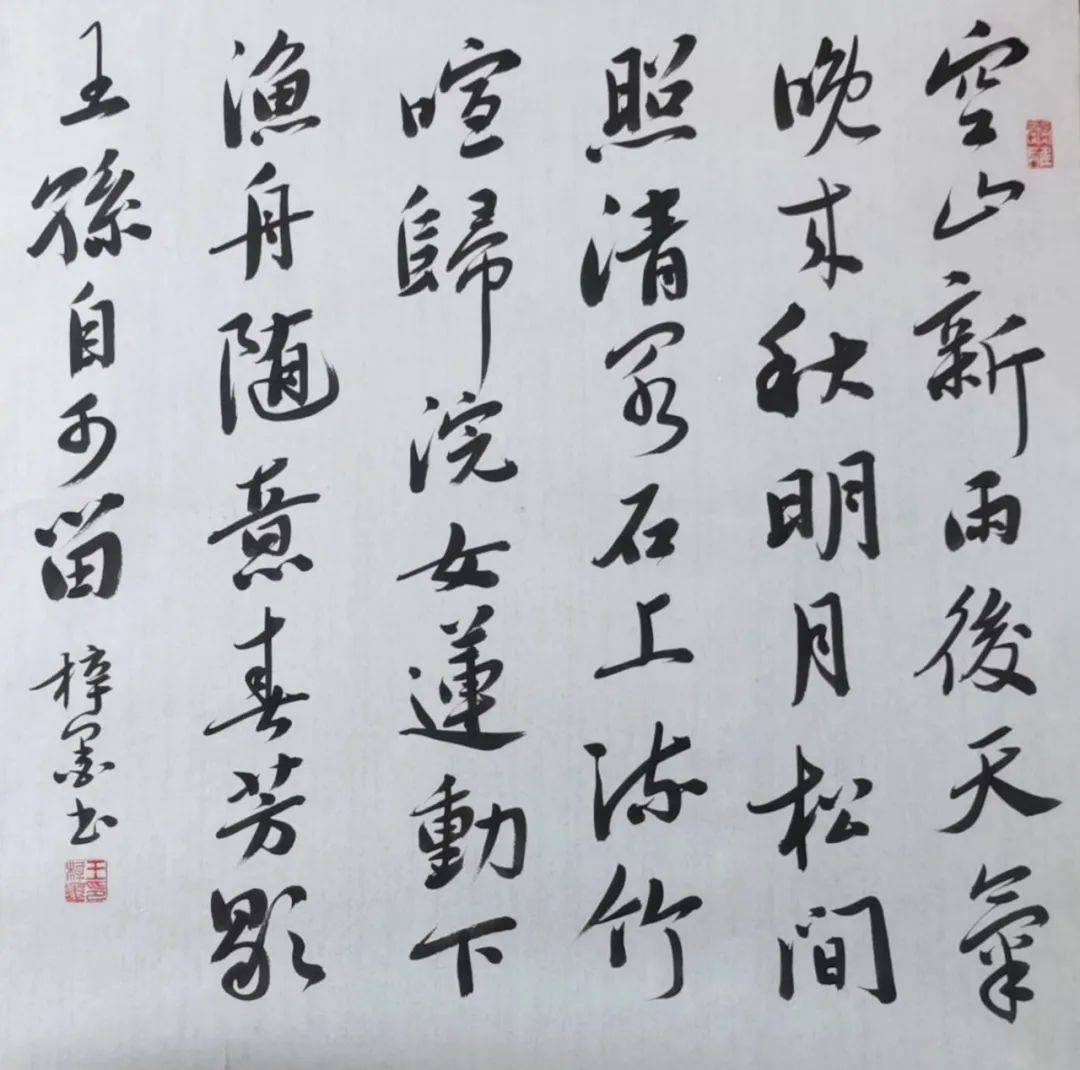 空山新雨後天氣
晚来秋明月松間
照清泉石上流竹
喧歸浣女蓮動下
漁舟随意春芳歇
王孫自可留
梓墨书